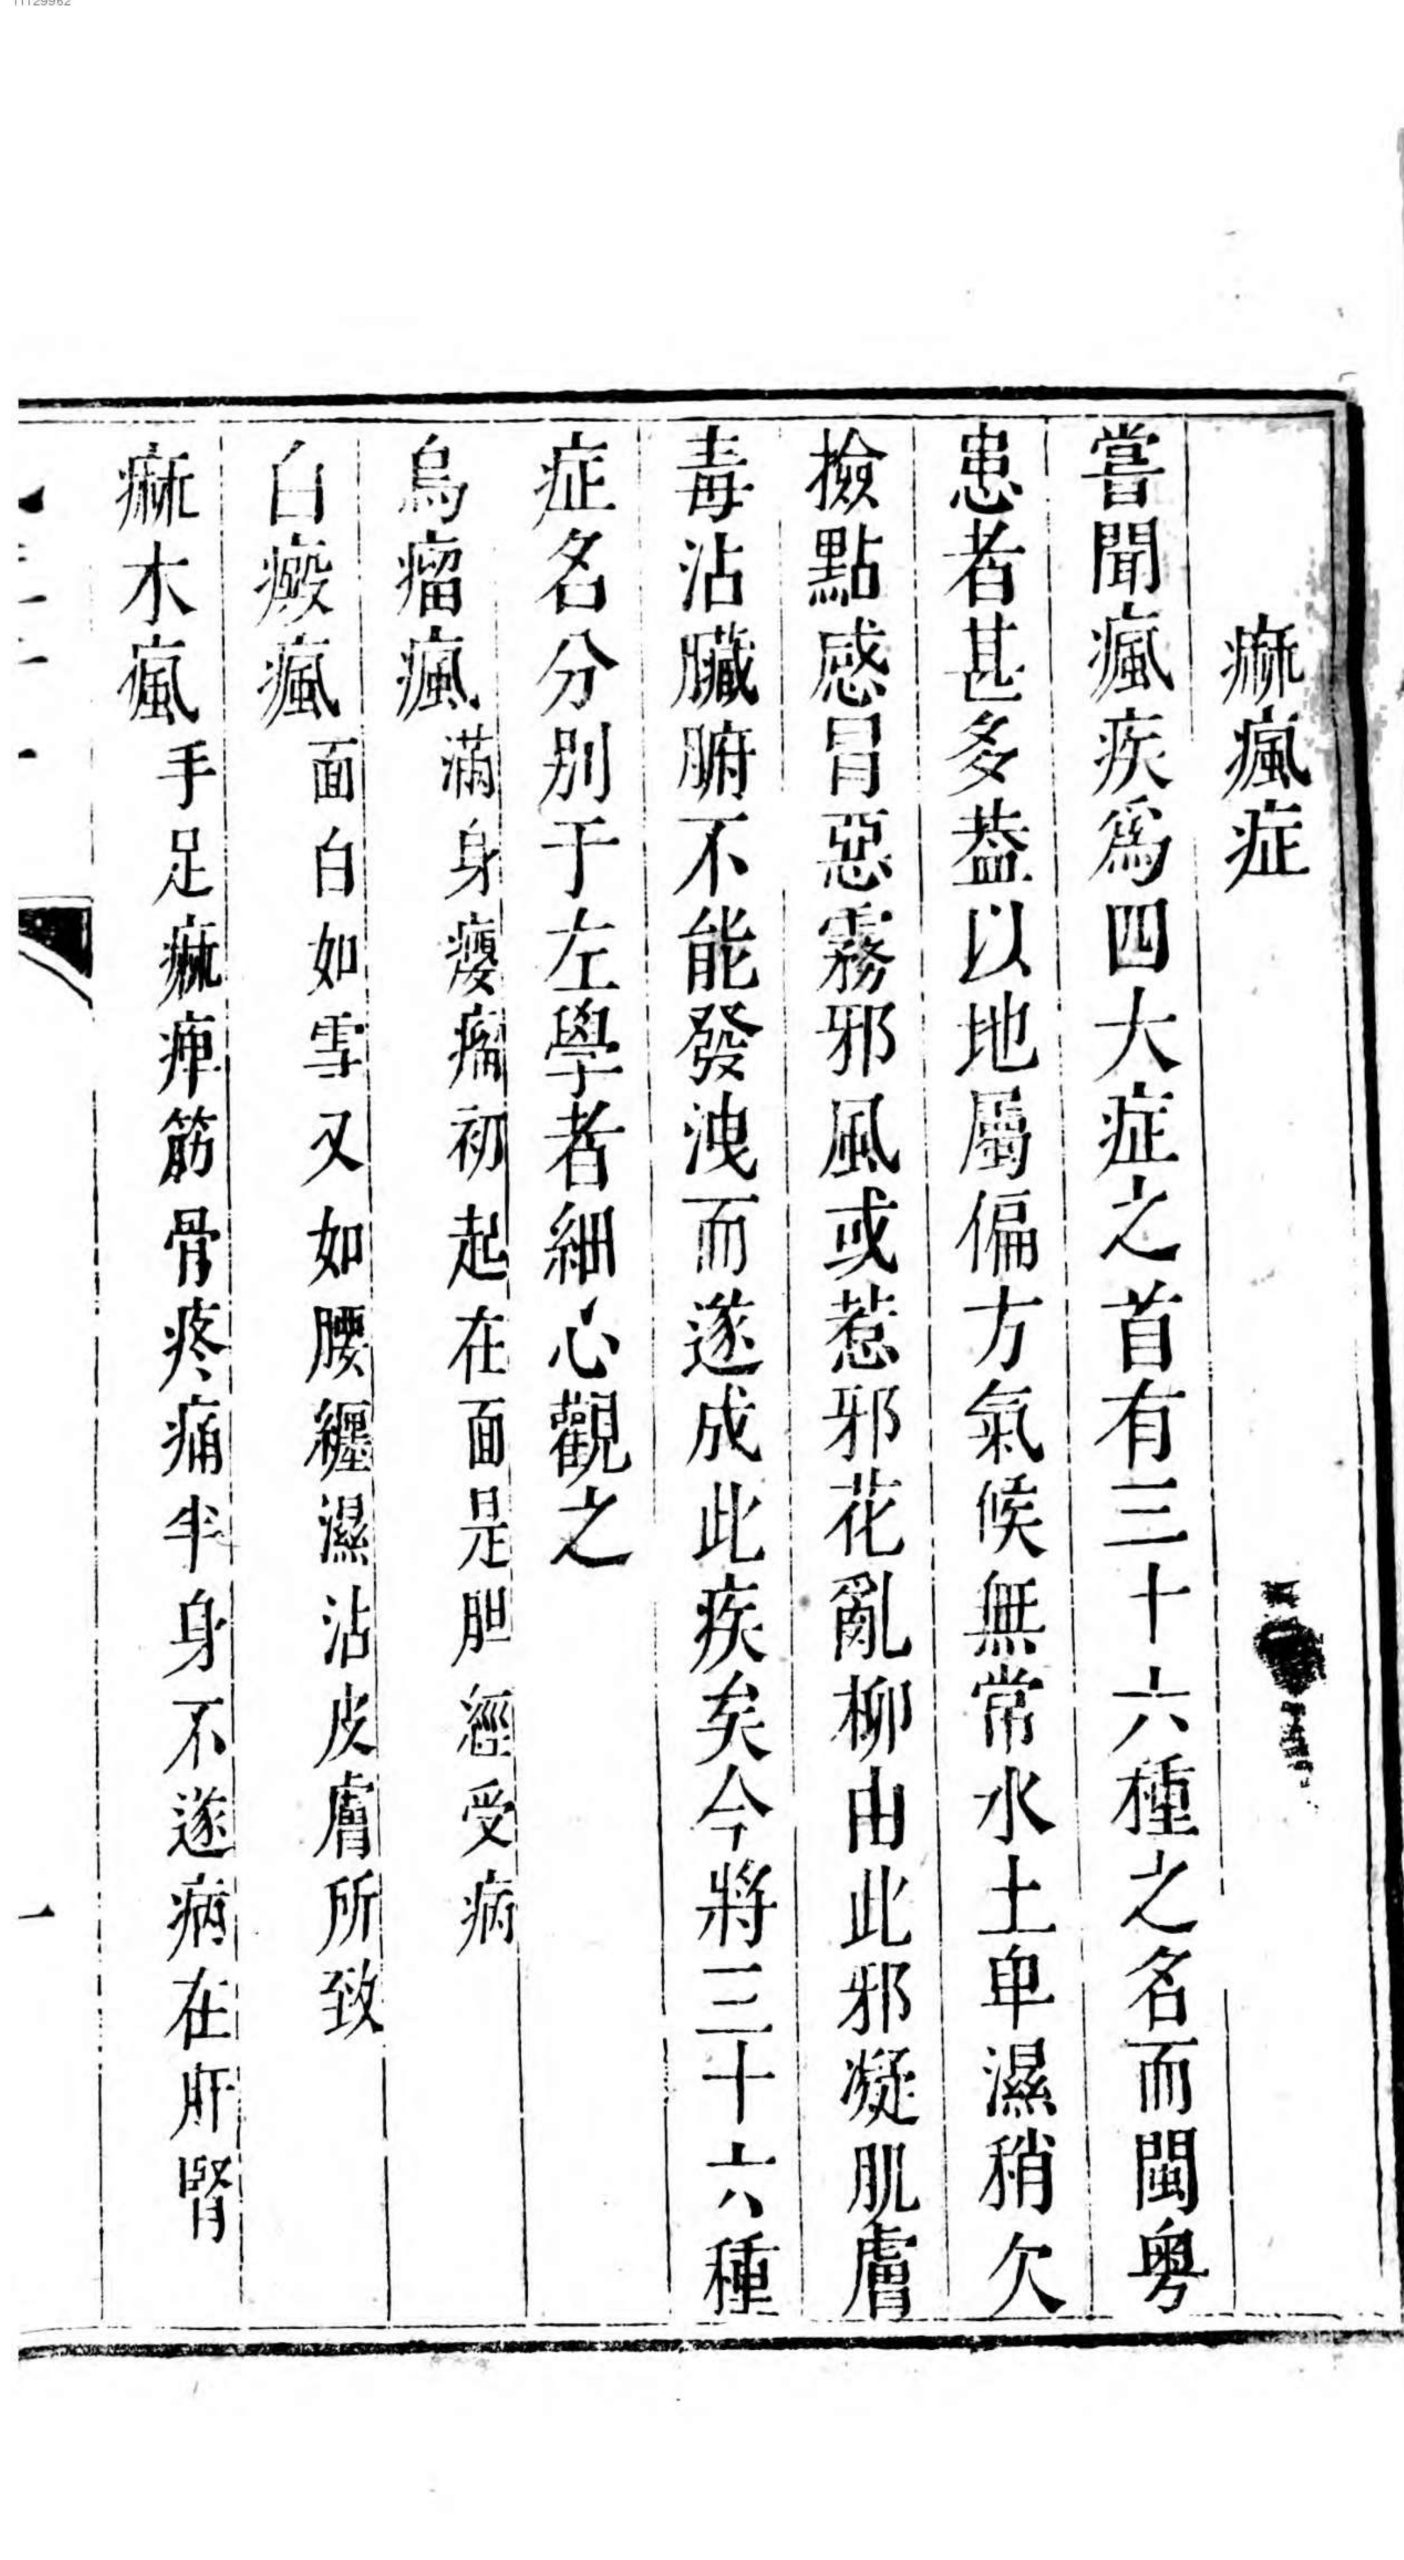 痳瘋症
嘗聞瘋疾爲四大症之首有三十六種之名而閩粵
患者甚多葢以地屬偏方氣候無常水土卑濕稍欠
撿點感冒惡霧邪風或惹邪花亂柳由此邪凝肌膚
毒沾臟腑不能發洩而遂成此疾矣今將三十六種
症名分别于左學者細心觀之
烏瘤瘋滿身癭瘤初起在面是胆經受病
白癜瘋面白如雪又如腰纒濕沾皮膚所致
痳木瘋手足痳痺筋骨疼痛半身不遂病在肝腎
一